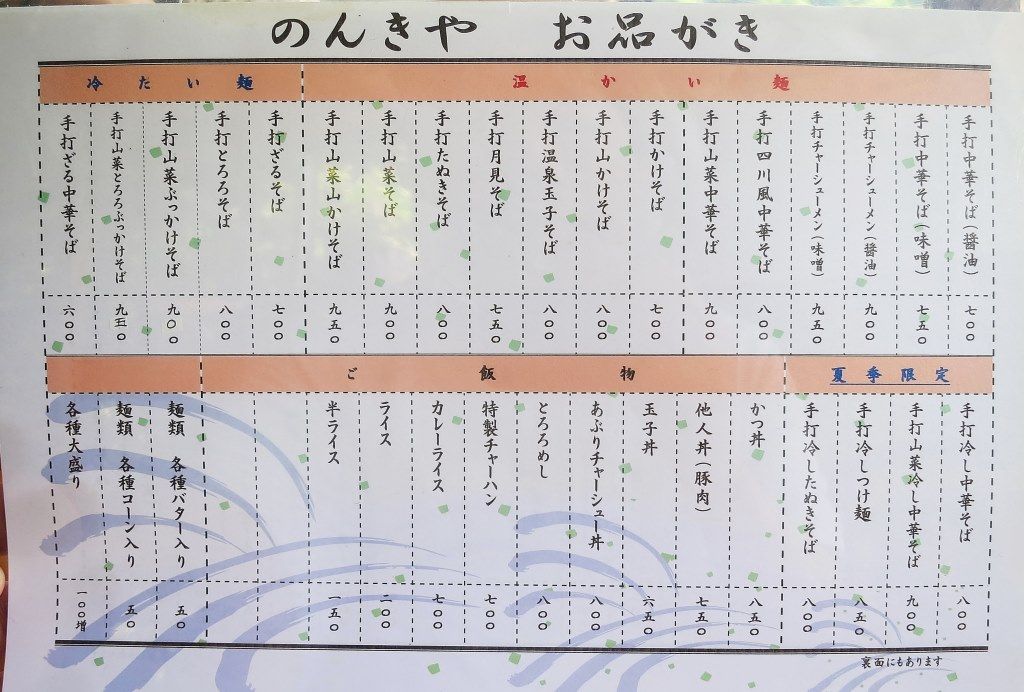 のんきや お品がき
温かい麺
手打中華そば(醤油) 七〇〇
手打中華そば(味噌) 七五〇
手打チャーシューメン(醤油) 九〇〇
手打チャーシューメン(味噌) 九五〇
手打四川風中華そば 八〇〇
手打山菜中華そば 九〇〇
手打かけそば 七〇〇
手打山かけそば 八〇〇
手打温泉玉子そば 八〇〇
手打月見そば 七五〇
手打たぬきそば 八〇〇
手打山菜そば 九〇〇
手打山菜山かけそば 九五〇
冷たい麺
手打ざるそば 七〇〇
手打とろろそば 八〇〇
手打山菜ぶっかけそば 九〇〇
手打山菜とろろぶっかけそば 九五〇
手打ざる中華そば 六〇〇
夏季限定
手打冷し中華そば 八〇〇
手打山菜冷し中華そば 九〇〇
手打冷しつけ麺 八五〇
手打冷したぬきそば 八〇〇
ご飯物
かつ丼 八五〇
他人丼(豚肉) 七五〇
玉子丼 六五〇
あぶりチャーシュー丼 八〇〇
とろろめし 八〇〇
特製チャーハン 七〇〇
カレーライス 七〇〇
ライス 二〇〇
半ライス 一五〇
麺類 各種バター入り 五〇
麺類 各種コーン入り 五〇
各種大盛り 一〇〇増
裏面にもあります